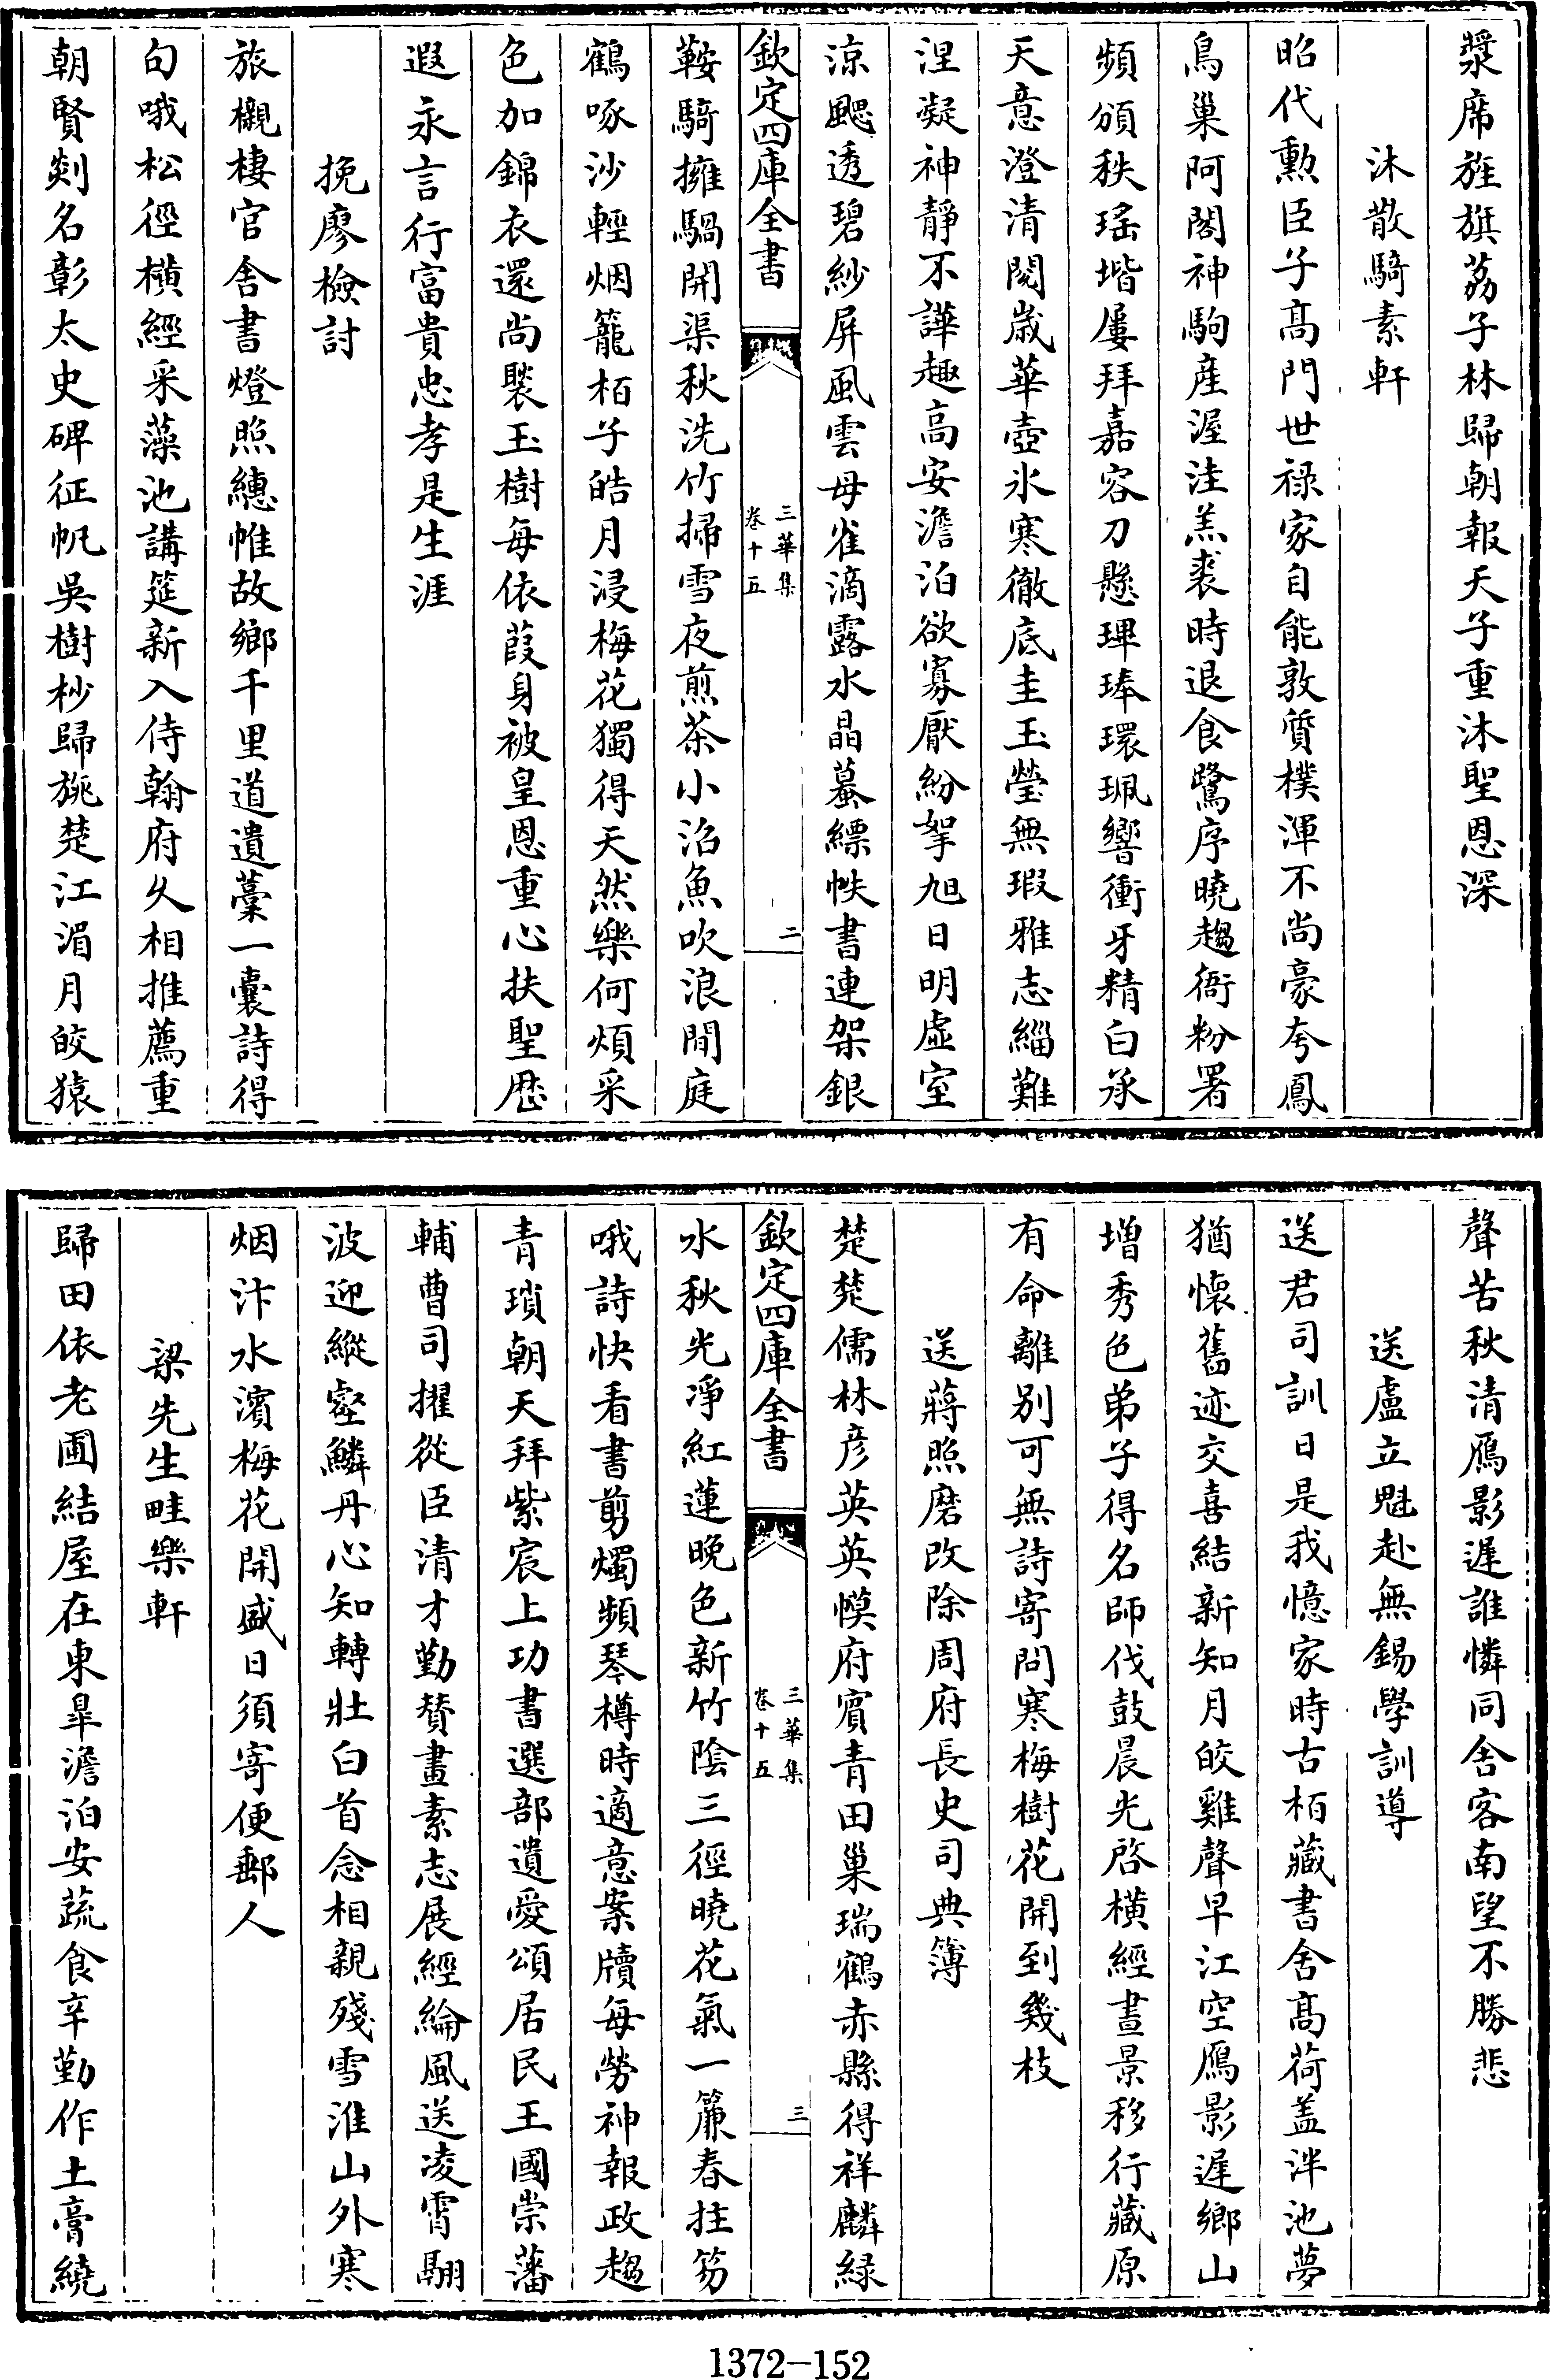 漿席旌旗荔子林歸朝報天子重沐聖恩深
沐散騎素軒
昭代勲臣子髙門世禄家自能敦質樸渾不尚豪夸鳳
鳥巢阿閣神駒産渥洼羔裘時退食鷺序曉趨衙粉署
頻頒秩瑶堦屢拜嘉容刀懸琕琫環珮響衝牙精白承
天意澄清閱歳華壺氷寒徹底圭玉瑩無瑕雅志緇難
涅凝神靜不譁趣高安澹泊欲寡厭紛挐旭日明虛室
涼颸透碧紗屏風雲母雀滴露水晶蟇縹帙書連架銀
欽定四庫全書
三華集
卷十五
二
鞍騎擁騧開渠秋洗竹掃雪夜煎茶小沼魚吹浪閒庭
鶴啄沙輕烟籠栢子皓月浸梅花獨得天然樂何煩采
色加錦衣還尚褧玉樹每依葭身被皇恩重心扶聖歴
遐永言行富貴忠孝是生涯
挽廖檢討
旅櫬棲官舍書燈照繐帷故鄉千里道遺藁一囊詩得
句哦松徑横經采藻池講筵新入侍翰府久相推薦重
朝賢剡名彰太史碑征帆吳樹杪歸旐楚江湄月皎猿
聲苦秋清鴈影遲誰憐同舍客南望不勝悲
送盧立魁赴無錫學訓導
送君司訓日是我憶家時古栢藏書舍髙荷盖泮池夢
猶懐舊迹交喜結新知月皎雞聲早江空鴈影遲鄉山
増秀色弟子得名師伐鼓晨光啓横經晝景移行藏原
有命離别可無詩寄問寒梅樹花開到幾枝
送蔣照磨改除周府長史司典簿
楚楚儒林彦英英幙府賓青田巢瑞鶴赤縣得祥麟緑
欽定四庫全書
三華集
卷十五
三
水秋光淨紅蓮晚色新竹陰三徑曉花氣一簾春拄笏
哦詩快看書剪燭頻琴樽時適意案牘每勞神報政趨
青瑣朝天拜紫宸上功書選部遺愛頌居民王國崇藩
輔曹司擢從臣清才勤賛畫素志展經綸風送凌霄翮
波迎縱壑鱗丹心知轉壯白首念相親殘雪淮山外寒
烟汴水濱梅花開盛日須寄便郵人
梁先生畦樂軒
歸田依老圃結屋在東臯澹泊安蔬食辛勤作土膏繞
1372-152